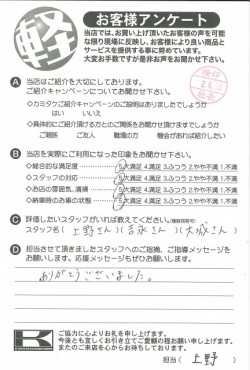 軽
お客様アンケート
当店では、お買い上げ頂いたお客様の声を可能
な限り現場に反映し、お客様により良い商品と
サービスを提供する事に努めています。
大変お手数ですが是非お声をお聞かせ下さい。
A 当店はご紹介を大切にしております。
ご紹介キャンペーンについてお聞かせ下さい。
◇カミタケご紹介キャンペーンのご説明はありましたでしょうか
はい いいえ
◇具体的にご紹介頂ける方とのご関係をお聞かせ頂けますでしょうか
ご親族 ご友人 職場の方 機会があれば紹介したい
B 当店を実際にご利用になった印象をお聞かせ下さい。
◇総合的な満足度 5.大満足 4.満足 3.ふつう 2.やや不満 1.不満
◇スタッフの対応 5.大満足 4.満足 3.ふつう 2.やや不満 1.不満
◇お店の雰囲気、清潔 5.大満足 4.満足 3.ふつう 2.やや不満 1.不満
◇納車時のお車の状態 5.大満足 4.満足 3.ふつう 2.やや不満 1.不満
C 評価したいスタッフがいれば教えてください。(複数回答可)
スタッフ名( 上野さん )( 吉永さん )( 大城さん )
D 担当させて頂きましたスタッフへのご指摘、ご指導メッセージを
お願いします。応援メッセージもぜひお願いします。
ありがとうございました。
ご協力に心よりお礼を申し上げます。
今後とも宜しくお引き立てご愛顧の程お願い申し上げます。
またのご来店を心からお待ちしております。
担当( 上野 )